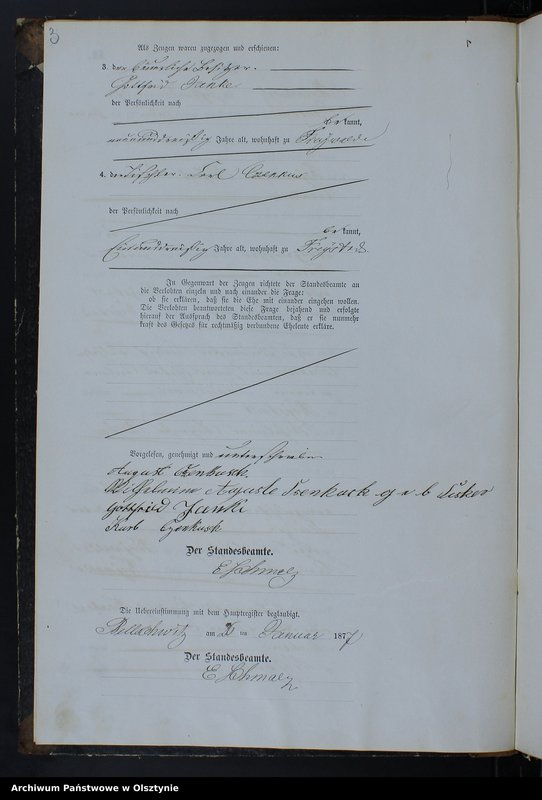 3
Als Zeugen waren zugezogen und erschienen:
3. der bäuerliche Besitzer
Gottfried Janke
der Persönlichkeit nach
be kannt,
neununddreißig Jahre alt, wohnhaft zu Freiwalde
4. der Karl Czenkus
der Persönlichkeit nach
be kannt,
einunddreißig Jahre alt, wohnhaft zu Freystadt
In Gegenwart der Zeugen richtete der Standesbeamte an
die Verlobten einzeln und nach einander die Frage:
ob sie erklären, daß sie die Ehe mit einander eingehen wollen.
Die Verlobten beantworteten diese Frage bejahend und erfolgte
hierauf der Ausspruch des Standesbeamten, daß er sie nunmehr
kraft des Gesetzes für rechtmäßig verbundene Eheleute erkläre.
Vorgelesen, genehmigt und unterschrieben
August Czenkusch
Wilhelmine Auguste Czenkusch geb
Gottfried Janke
Karl Czenkusch
Der Standesbeamte.
E Schmelz
Die Uebereinstimmung mit dem Hauptregister beglaubigt.
Bellschwitz am 2 ten Januar 1877
Der Standesbeamte.
E Schmalz
Archiwum Państwowe w Olsztynie